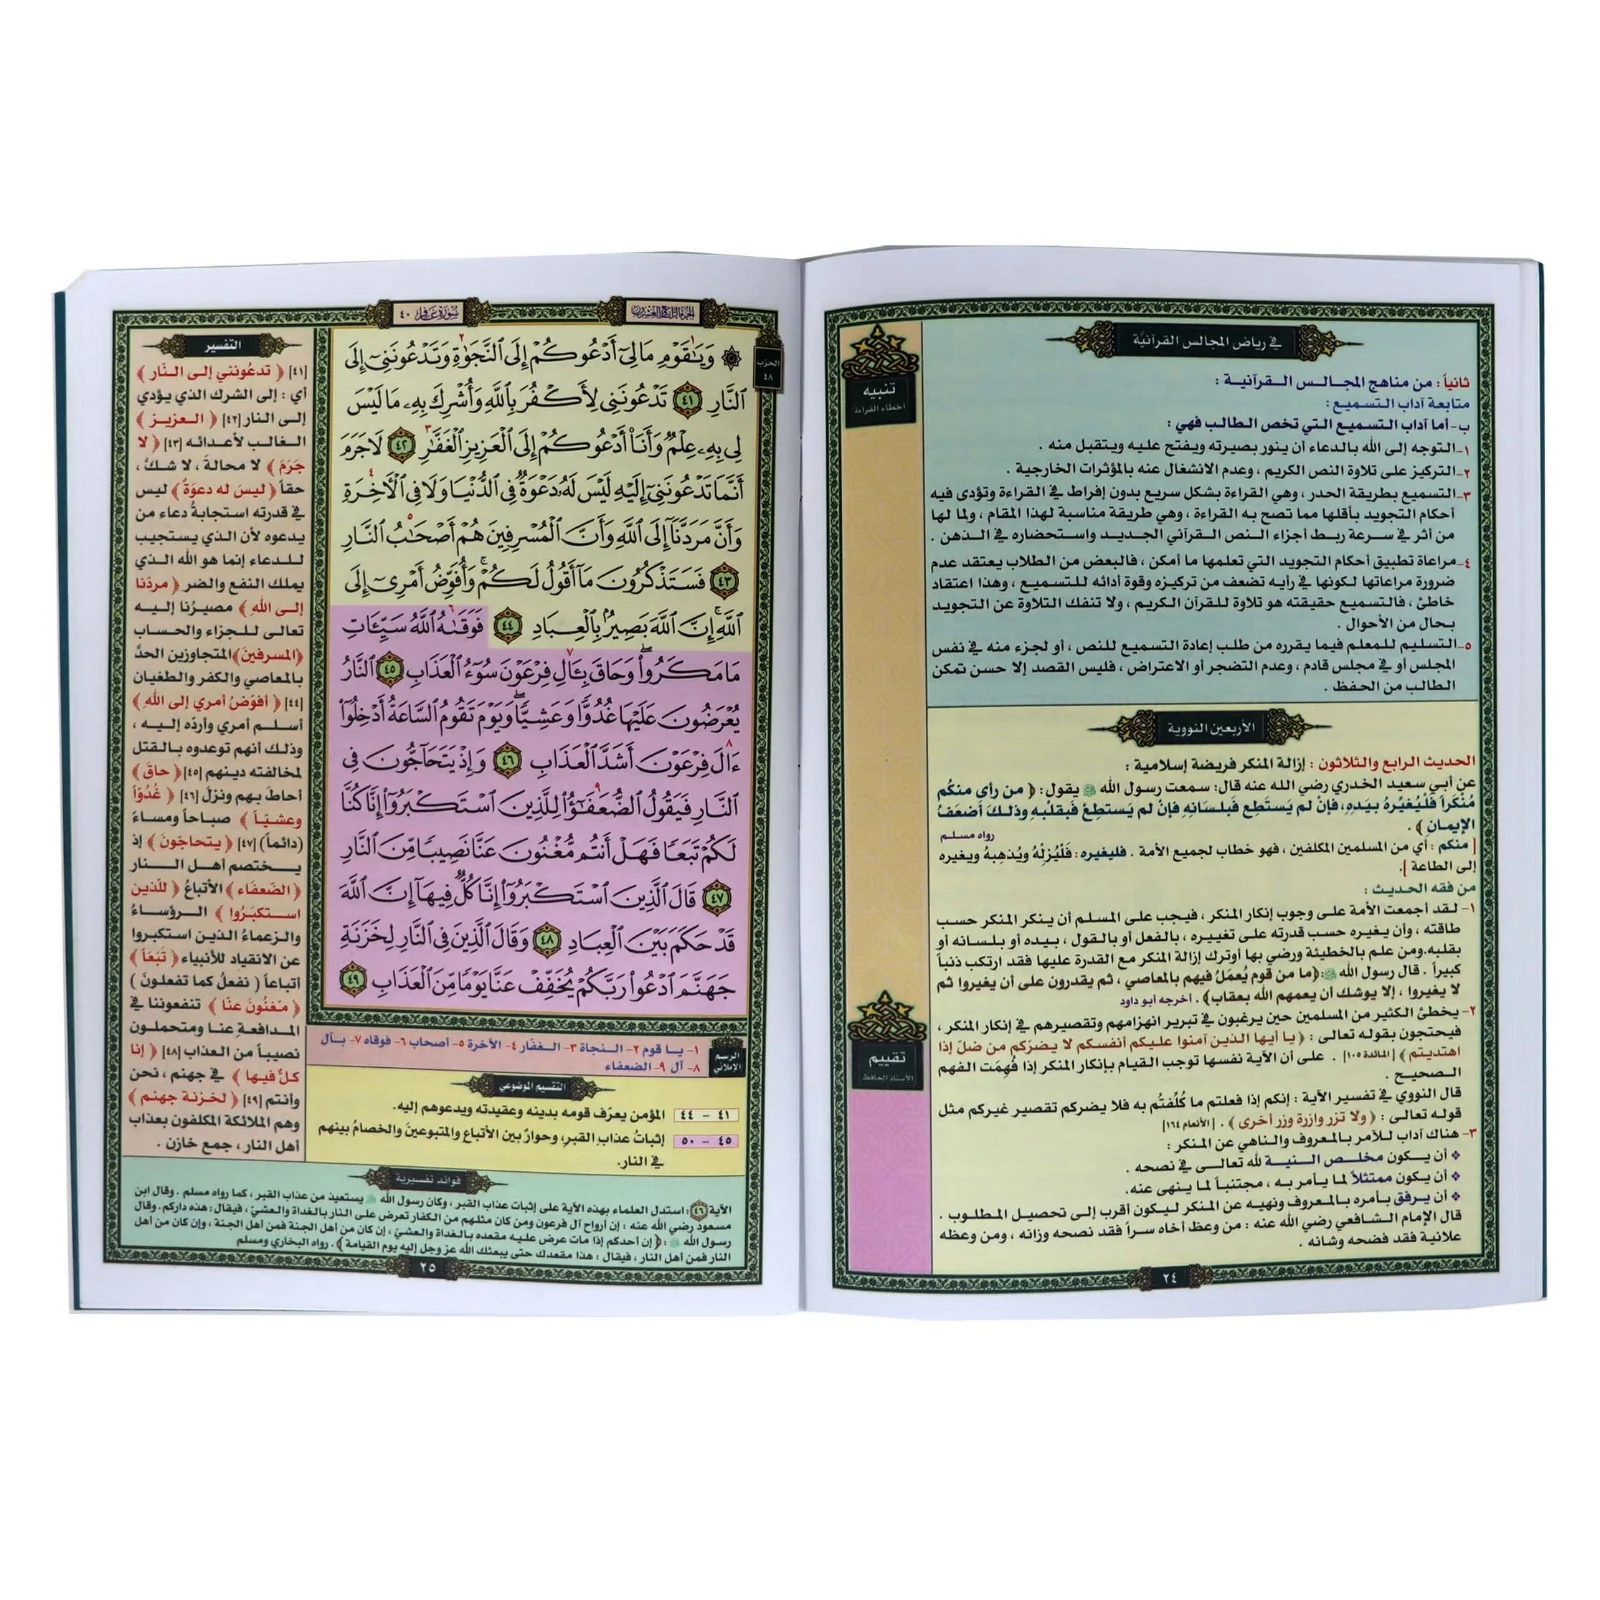 في رياض المجالس القرآنية
تنبيه
أخطاء القراءة
ثانياً : من مناهج المجالس القرآنية :
متابعة آداب التسميع :
ب- أما آداب التسميع التي تخص الطالب فهي :
١- التوجه إلى الله بالدعاء أن ينور بصيرته ويفتح عليه ويتقبل منه .
٢- التركيز على تلاوة النص الكريم ، وعدم الانشغال عنه بالمؤثرات الخارجية .
٣- التسميع بطريقة الحدر ، وهي القراءة بشكل سريع بدون إفراط في القراءة وتؤدى فيه
أحكام التجويد بأقلها مما تصح به القراءة ، وهي طريقة مناسبة لهذا المقام ، ولما لها
من أثر في سرعة ربط أجزاء النص القرآني الجديد واستحضاره في الذهن .
٤- مراعاة تطبيق أحكام التجويد التي تعلمها ما أمكن ، فالبعض من الطلاب يعتقد عدم
ضرورة مراعاتها لكونها في رأيه تضعف من تركيزه وقوة أدائه للتسميع ، وهذا اعتقاد
خاطئ ، فالتسميع حقيقته هو تلاوة للقرآن الكريم ، ولا تنفك التلاوة عن التجويد
بحال من الأحوال .
٥- التسليم للمعلم فيما يقرره من طلب إعادة التسميع للنص ، أو لجزء منه في نفس
المجلس أو في مجلس قادم ، وعدم التضجر أو الاعتراض ، فليس القصد إلا حسن تمكن
الطالب من الحفظ .
الأربعين النووية
الحديث الرابع والثلاثون : إزالة المنكر فريضة إسلامية :
عن أبي سعيد الخدري رضي الله عنه قال: سمعت رسول الله ﷺ يقول: ﴿ من رأى منكم
مُنْكَراً فَلْيُغَيِّرهُ بيَدِهِ، فإنْ لم يَسْتَطِع فَبلسَانِهِ فإنْ لم يَستطِعْ فَبقلْبهِ وذلكَ أضعَفُ
الإيمان ﴾ .
رواه مسلم
[ منكم : أي من المسلمين المكلفين ، فهو خطاب لجميع الأمة . فليغيره : فَلْيُزِلْهُ ويُذهِبهُ ويغيره
إلى الطاعة ].
من فقه الحديث :
١- لقد أجمعت الأمة على وجوب إنكار المنكر ، فيجب على المسلم أن ينكر المنكر حسب
طاقته ، وأن يغيره حسب قدرته على تغييره ، بالفعل أو بالقول ، بيده أو بلسانه أو
بقلبه.ومن علم بالخطيئة ورضي بها أوترك إزالة المنكر مع القدرة عليها فقد ارتكب ذنباً
كبيراً . قال رسول الله ﷺ: ﴿ما من قوم يُعمَلُ فيهم بالمعاصي ، ثم يقدرون على أن يغيروا ثم
لا يغيروا ، إلا يوشك أن يعمهم الله بعقاب﴾ . أخرجه أبو داود
٢- يخطئ الكثير من المسلمين حين يرغبون في تبرير انهزامهم وتقصيرهم في إنكار المنكر ،
فيحتجون بقوله تعالى : ﴿ يا أيها الذين آمنوا عليكم أنفسكم لا يضرّكم من ضلّ إذا
اهتديتم ﴾ [ المائدة ١٠٥] . على أن الآية نفسها توجب القيام بإنكار المنكر إذا فُهِمَت الفهم
الصحيح .
قال النووي في تفسير الآية : إنكم إذا فعلتم ما كُلِّفتُم به فلا يضركم تقصير غيركم مثل
قوله تعالى : ﴿ ولا تزر وازرة وزر أخرى ﴾ . [ الأنعام ١٦٤]
٣- هناك آداب للآمر بالمعروف والناهي عن المنكر :
❖ أن يكون مخلص النية لله تعالى في نصحه .
❖ أن يكون ممتثلاً لما يأمر به ، مجتنباً لما ينهى عنه.
❖ أن يرفق بأمره بالمعروف ونهيه عن المنكر ليكون أقرب إلى تحصيل المطلوب .
قال الإمام الشافعي رضي الله عنه : من وعظ أخاه سراً فقد نصحه وزانه ، ومن وعظه
علانية فقد فضحه وشانه .
تقييم
الأستاذ الحافظ
٢٤
الجزء الرابع والعشرون
سورة غافر ٤٠
الحزب
٤٨
۞ وَيَٰقَوْمِ مَا لِىٓ أَدْعُوكُمْ إِلَى ٱلنَّجَوٰةِ وَتَدْعُونَنِىٓ إِلَى
ٱلنَّارِ ٤١ تَدْعُونَنِى لِأَكْفُرَ بِٱللَّهِ وَأُشْرِكَ بِهِۦ مَا لَيْسَ
لِى بِهِۦ عِلْمٌ وَأَنَا۠ أَدْعُوكُمْ إِلَى ٱلْعَزِيزِ ٱلْغَفَّٰرِ ٤٢ لَا جَرَمَ
أَنَّمَا تَدْعُونَنِىٓ إِلَيْهِ لَيْسَ لَهُۥ دَعْوَةٌ فِى ٱلدُّنْيَا وَلَا فِى ٱلْءَاخِرَةِ
وَأَنَّ مَرَدَّنَآ إِلَى ٱللَّهِ وَأَنَّ ٱلْمُسْرِفِينَ هُمْ أَصْحَٰبُ ٱلنَّارِ
٤٣ فَسَتَذْكُرُونَ مَآ أَقُولُ لَكُمْ ۚ وَأُفَوِّضُ أَمْرِىٓ إِلَى
ٱللَّهِ ۚ إِنَّ ٱللَّهَ بَصِيرٌۢ بِٱلْعِبَادِ ٤٤ فَوَقَىٰهُ ٱللَّهُ سَيِّـَٔاتِ
مَا مَكَرُوا۟ ۖ وَحَاقَ بِـَٔالِ فِرْعَوْنَ سُوٓءُ ٱلْعَذَابِ ٤٥ ٱلنَّارُ
يُعْرَضُونَ عَلَيْهَا غُدُوًّا وَعَشِيًّا ۖ وَيَوْمَ تَقُومُ ٱلسَّاعَةُ أَدْخِلُوٓا۟
ءَالَ فِرْعَوْنَ أَشَدَّ ٱلْعَذَابِ ٤٦ وَإِذْ يَتَحَآجُّونَ فِى
ٱلنَّارِ فَيَقُولُ ٱلضُّعَفَٰٓؤُا۟ لِلَّذِينَ ٱسْتَكْبَرُوٓا۟ إِنَّا كُنَّا
لَكُمْ تَبَعًا فَهَلْ أَنتُم مُّغْنُونَ عَنَّا نَصِيبًا مِّنَ ٱلنَّارِ
٤٧ قَالَ ٱلَّذِينَ ٱسْتَكْبَرُوٓا۟ إِنَّا كُلٌّ فِيهَآ إِنَّ ٱللَّهَ
قَدْ حَكَمَ بَيْنَ ٱلْعِبَادِ ٤٨ وَقَالَ ٱلَّذِينَ فِى ٱلنَّارِ لِخَزَنَةِ
جَهَنَّمَ ٱدْعُوا۟ رَبَّكُمْ يُخَفِّفْ عَنَّا يَوْمًا مِّنَ ٱلْعَذَابِ ٤٩
الرسم
الإملائي
١- يا قوم ٢- النجاة ٣- الغفار ٤- الآخرة ٥- أصحاب ٦- فوقاه ٧- بآل
٨- آل ٩- الضعفاء
التقسيم الموضوعي
٤١ - ٤٤ المؤمن يعرّف قومه بدينه وعقيدته ويدعوهم إليه.
٤٥ - ٥٠ إثباتُ عذابِ القبرِ، وحوارٌ بين الأتباعِ والمتبوعينَ والخصامُ بينهم
في النار.
التفسير
[٤١] ﴿ تدعُونني إلى النَّار ﴾
أي : إلى الشرك الذي يؤدي
إلى النار [٤٢] ﴿ العزيز ﴾
الغالب لأعدائه [٤٣] ﴿ لا
جَرَمَ ﴾ لا محالةَ ، لا شكَّ ،
حقاً ﴿ ليسَ له دعوَةٌ ﴾ ليس
في قدرته استجابةُ دعاء من
يدعوه لأن الذي يستجيب
للدعاء إنما هو الله الذي
يملك النفع والضر ﴿ مردّنا
إلى اللهِ ﴾ مصيرُنا إليه
تعالى للجزاء والحساب
﴿المسرفينَ﴾ المتجاوزين الحدَّ
بالمعاصي والكفر والطغيان
[٤٤] ﴿ أفوّضُ أمري إلى اللهِ ﴾
أسلم أمري وأردّه إليه ،
وذلك أنهم توعدوه بالقتل
لمخالفته دينهم [٤٥] ﴿ حاقَ ﴾
أحاطَ بهم ونزلَ [٤٦] ﴿ غُدُوّاً
وعشيّاً ﴾ صباحاً ومساءً
(دائماً) [٤٧] ﴿ يتحاجّونَ ﴾ إذ
يختصم أهل النار
﴿ الضّعفاء ﴾ الأتباعُ ﴿ للّذين
استكبَرُوا ﴾ الرؤساءُ
والزعماءُ الذين استكبروا
عن الانقياد للأنبياء ﴿ تَبَعَاً ﴾
أتباعاً ( نفعلُ كما تفعلونَ )
﴿ مُغنُونَ عنّا ﴾ تنفعوننا في
المدافعةِ عنا ومتحملون
نصيباً من العذاب [٤٨] ﴿ إنا
كلٌّ فيها ﴾ في جهنم ، نحن
وأنتم [٤٩] ﴿ لخزنة جهنم ﴾
وهم الملائكة المكلفون بعذاب
أهل النار ، جمع خازن .
فوائد تفسيرية
الآية ٤٦ : استدل العلماء بهذه الآية على إثبات عذاب القبر ، وكان رسول الله ﷺ يستعيذ من عذاب القبر ، كما رواه مسلم . وقال ابن
مسعود رضي الله عنه : إن أرواح آل فرعون ومن كان مثلهم من الكفار تعرض على النار بالغداة والعشيّ ، فيقال : هذه داركم. وقال
رسول الله ﷺ : ﴿ إن أحدكم إذا مات عرض عليه مقعده بالغداة والعشيّ ، إن كان من أهل الجنة فمن أهل الجنة ، وإن كان من أهل
النار فمن أهل النار ، فيقال : هذا مقعدك حتى يبعثك الله عز وجل إليه يوم القيامة ﴾ . رواه البخاري ومسلم
٢٥